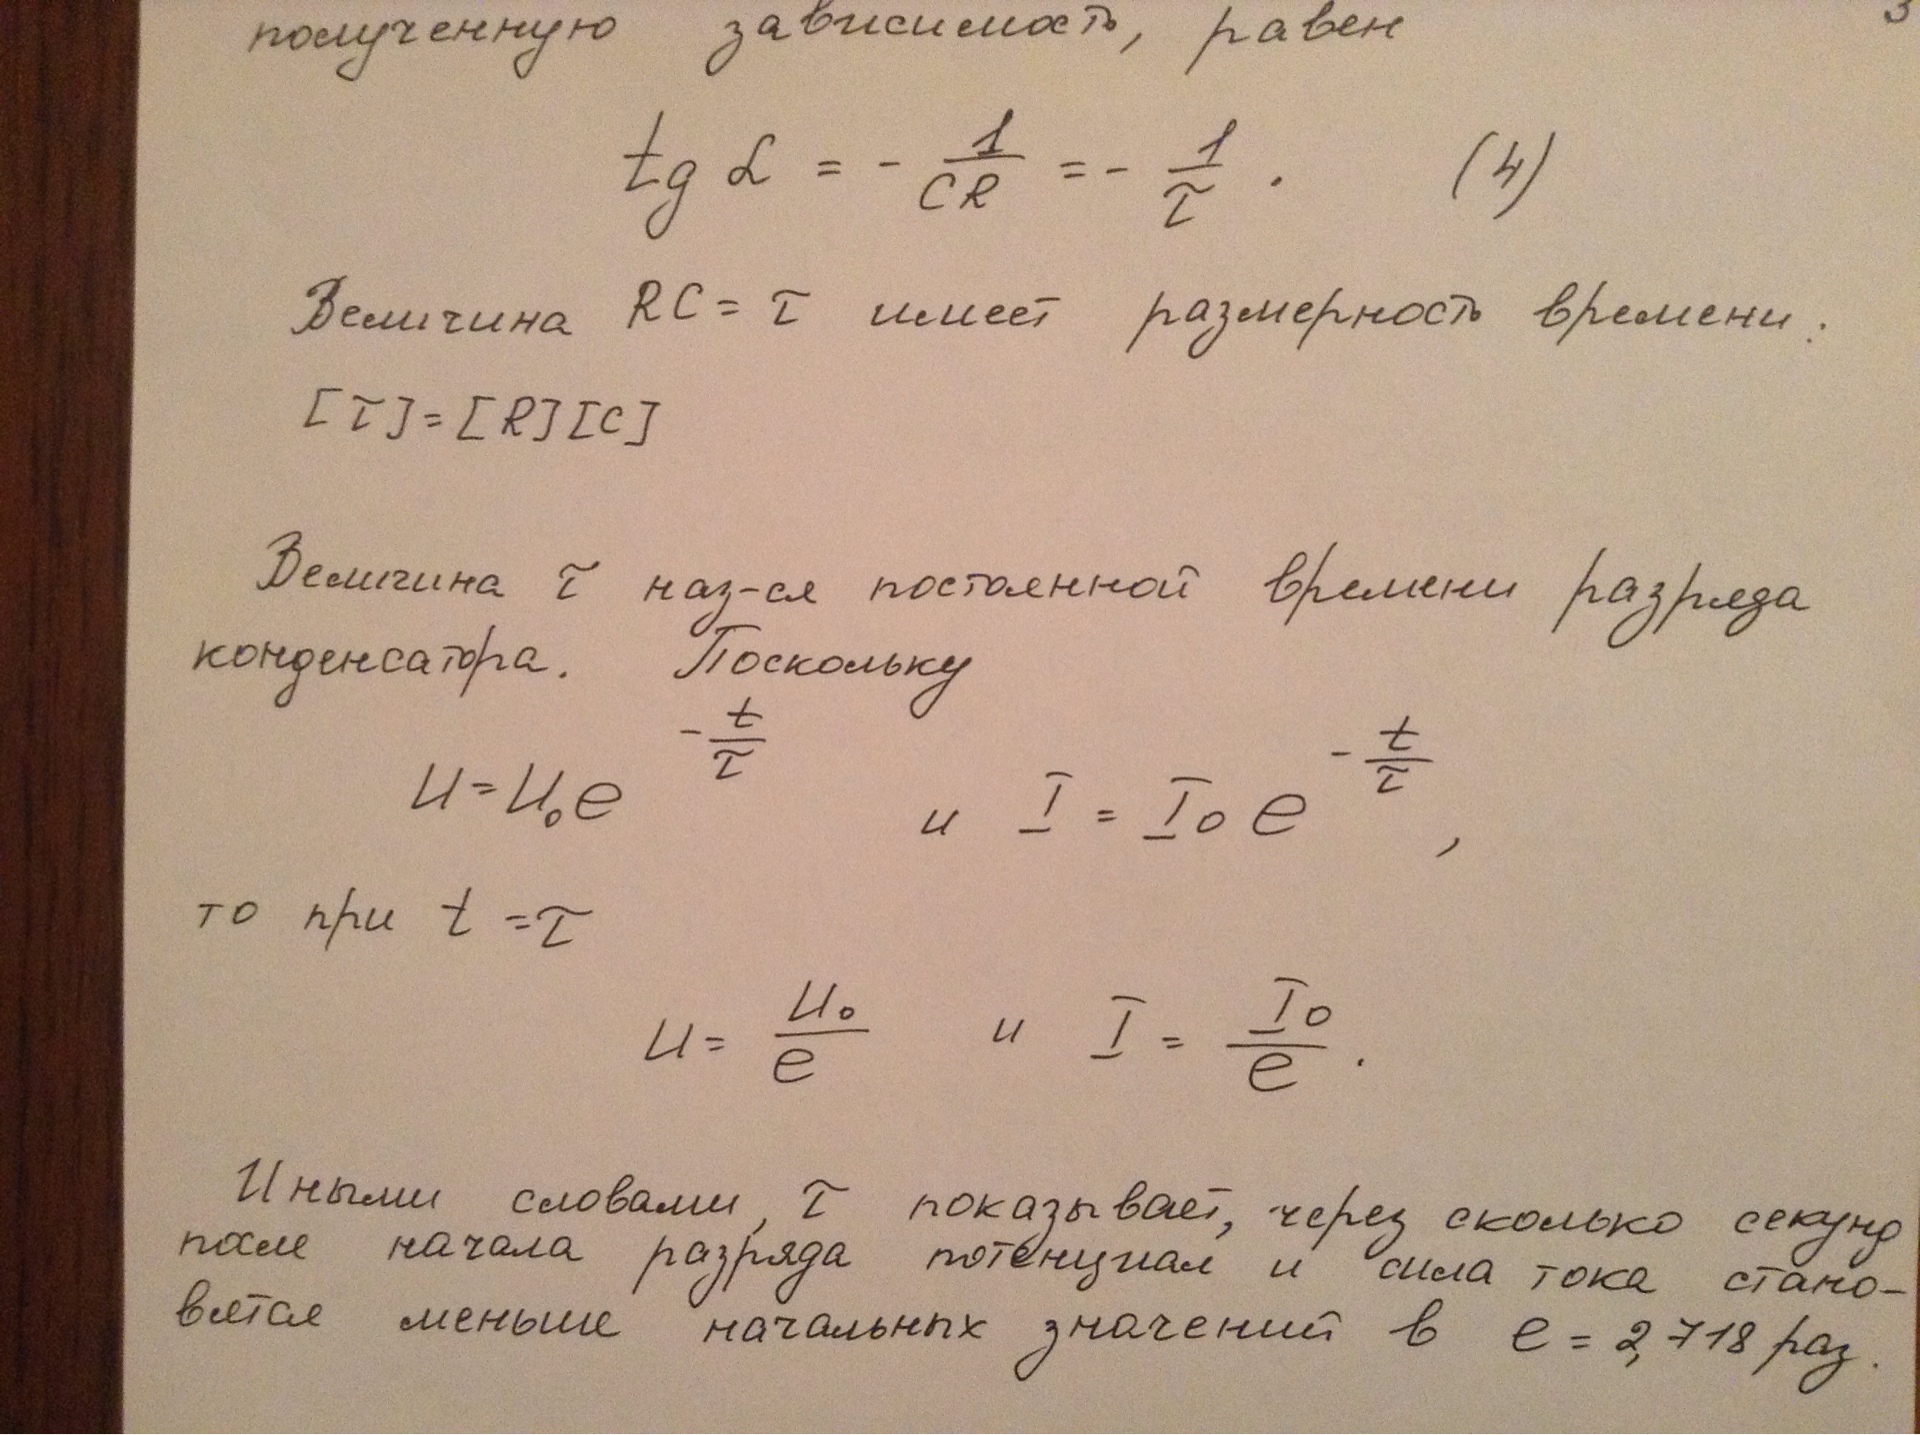 3
полученную зависимость, равен
tg α = - 1/CR = - 1/τ . (4)
Величина RC = τ имеет размерность времени:
[τ] = [R][C]
Величина τ наз-ся постоянной времени разряда
конденсатора. Поскольку
U = U₀e^(-t/τ) и I = I₀e^(-t/τ) ,
то при t = τ
U = U₀/e и I = I₀/e .
Иными словами, τ показывает, через сколько секунд
после начала разряда потенциал и сила тока стано-
вятся меньше начальных значений в e = 2,718 раз.